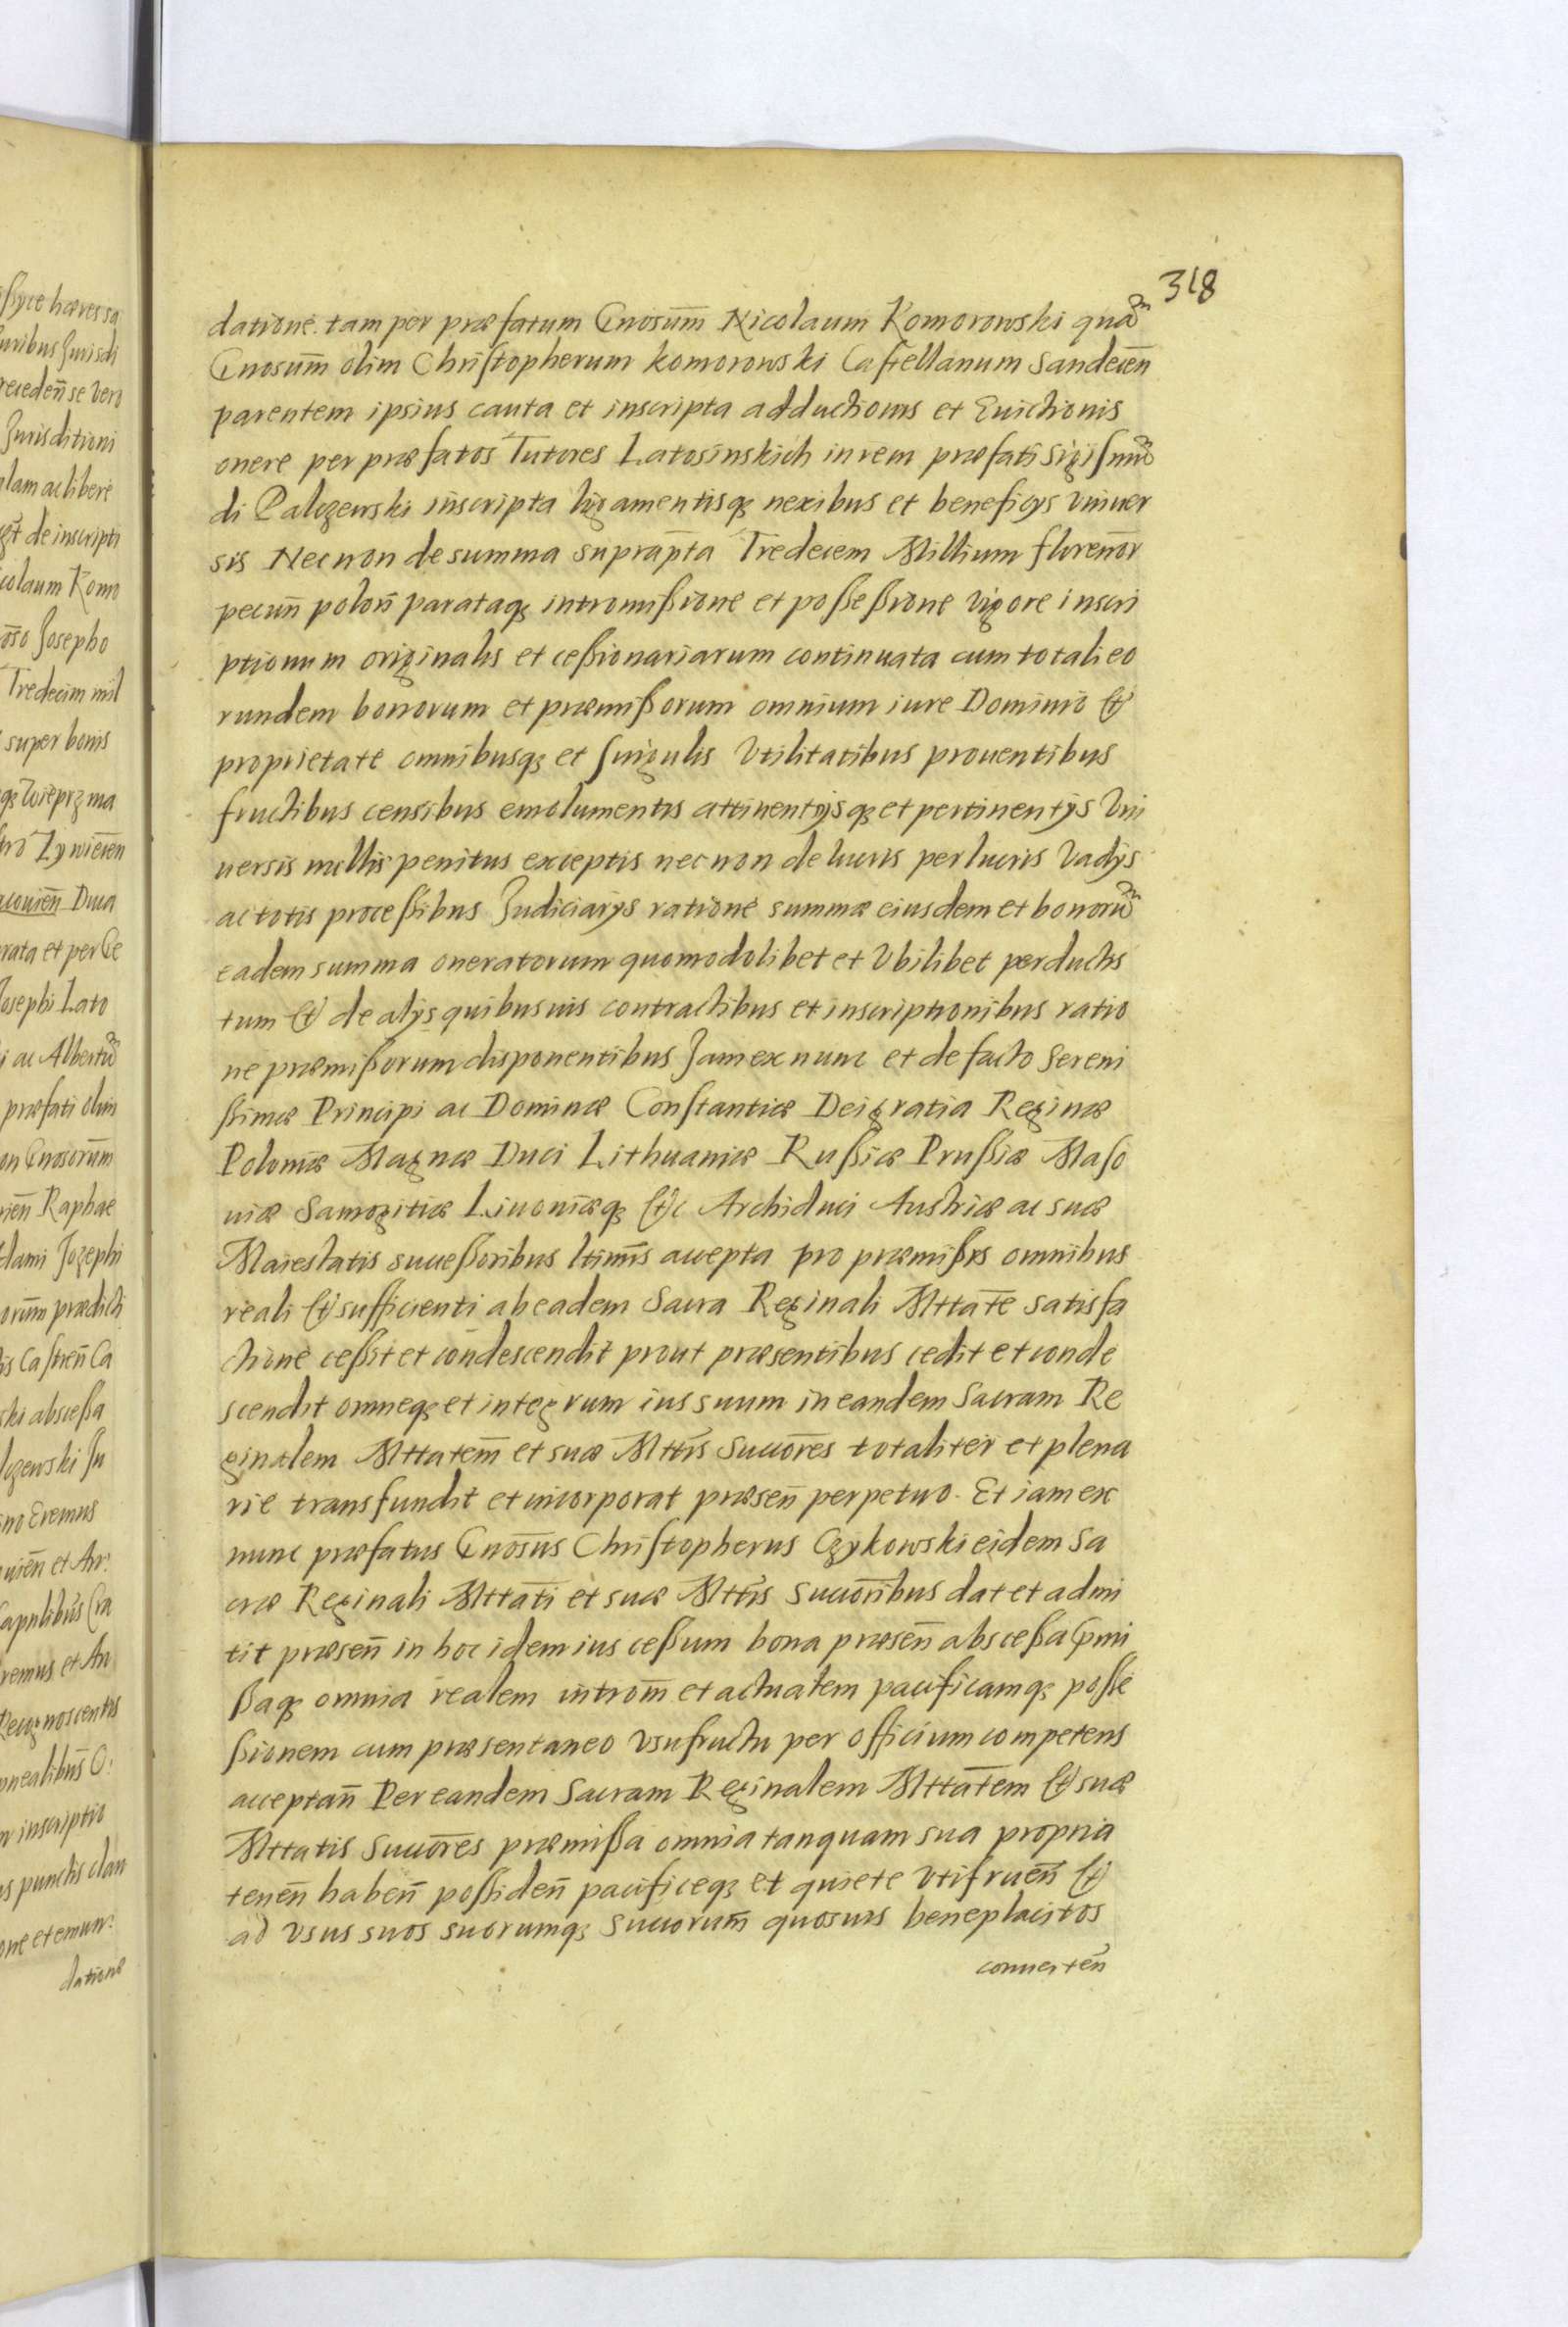 318
datione tam per præfatum Gnosum̄ Nicolaum Komorowski quā
Gnosum̄ olim Christopherum Komorowski Castellanum Sandecen̄
parentem ipsius cauta et inscripta adductionis et Euictionis
onere per præfatos Tutores Latosinskich in rem præfati Sigismū
di Palczewski inscripta ligamentisq̨ nexibus et beneficijs vniuer
sis Necnon de summa suprap̄ta Tredecem Millium floren̄or
pecun̄ polon̄ parataq̨ intromißione et poßeßione vigore inscri
ptionum originalis et ceßionariarum continuata cum totali eo
rundem bonorum et præmißorum omnium iure Dominio &
proprietate omnibusq̨ et singulis Vtilitatibus prouentibus
fructibus censibus emolumentis attinentijsq̨ et pertinentijs Vni
uersis nullis penitus exceptis nec non de lucris perlucris Vadijs
ac totis proceßibus Judiciarijs ratione summæ eiusdem et bonorū
eadem summa oneratorum quomodolibet et Vbilibet perductis
tum & de alijs quibusuis contractibus et inscriptionibus ratio
ne præmißorum disponentibus Jam ex nunc et de facto Sereni
ßimæ Principi ac Dominæ Constantiæ Dei gratia Reginæ
Poloniæ Magnæ Duci Lithuaniæ Rußiæ Prußiæ Maso
uiæ Samogitiæ Liuoniæq̨ &c Archiduci Austriæ ac suæ
Maiestatis succeßoribus ltimis̄ accepta pro præmißis omnibus
reali & sufficienti ab eadem Sacra Reginali Mttatē satisfa
ctione ceßit et condescendit prout præsentibus cedit et conde
scendit omneq̨ et integrum ius suum in eandem Sacram Re
ginalem Mttatem̄ et suæ Mttis̄ Succor̄es totaliter et plena
rie transfundit et incorporat præsen̄ perpetuo. Et iam ex
nunc præfatus Gnosus̄ Christopherus Czykowski eidem Sa
cræ Reginali Mttati̅ et suæ Mttis̄ Succor̄ibus dat et admi
tit præsen̄ in hoc idem ius ceßum bona præsen̄ absceßa p̄mi
ßaq̨ omnia realem introm̄ et actualem pacificamq̨ poße
ßionem cum præsentaneo Vsufructu per officium competens
acceptan̄ Per eandem Sacram Reginalem Mttatēm & suæ
Mttatis Succor̄es præmißa omnia tanquam sua propria
tenen̄ haben̄ poßiden̄ pacificeq̨ et quiete Vtifruen̄ &
ad Vsus suos suorumq̨ Succorum̄ quosuis beneplacitos
conuerten̄